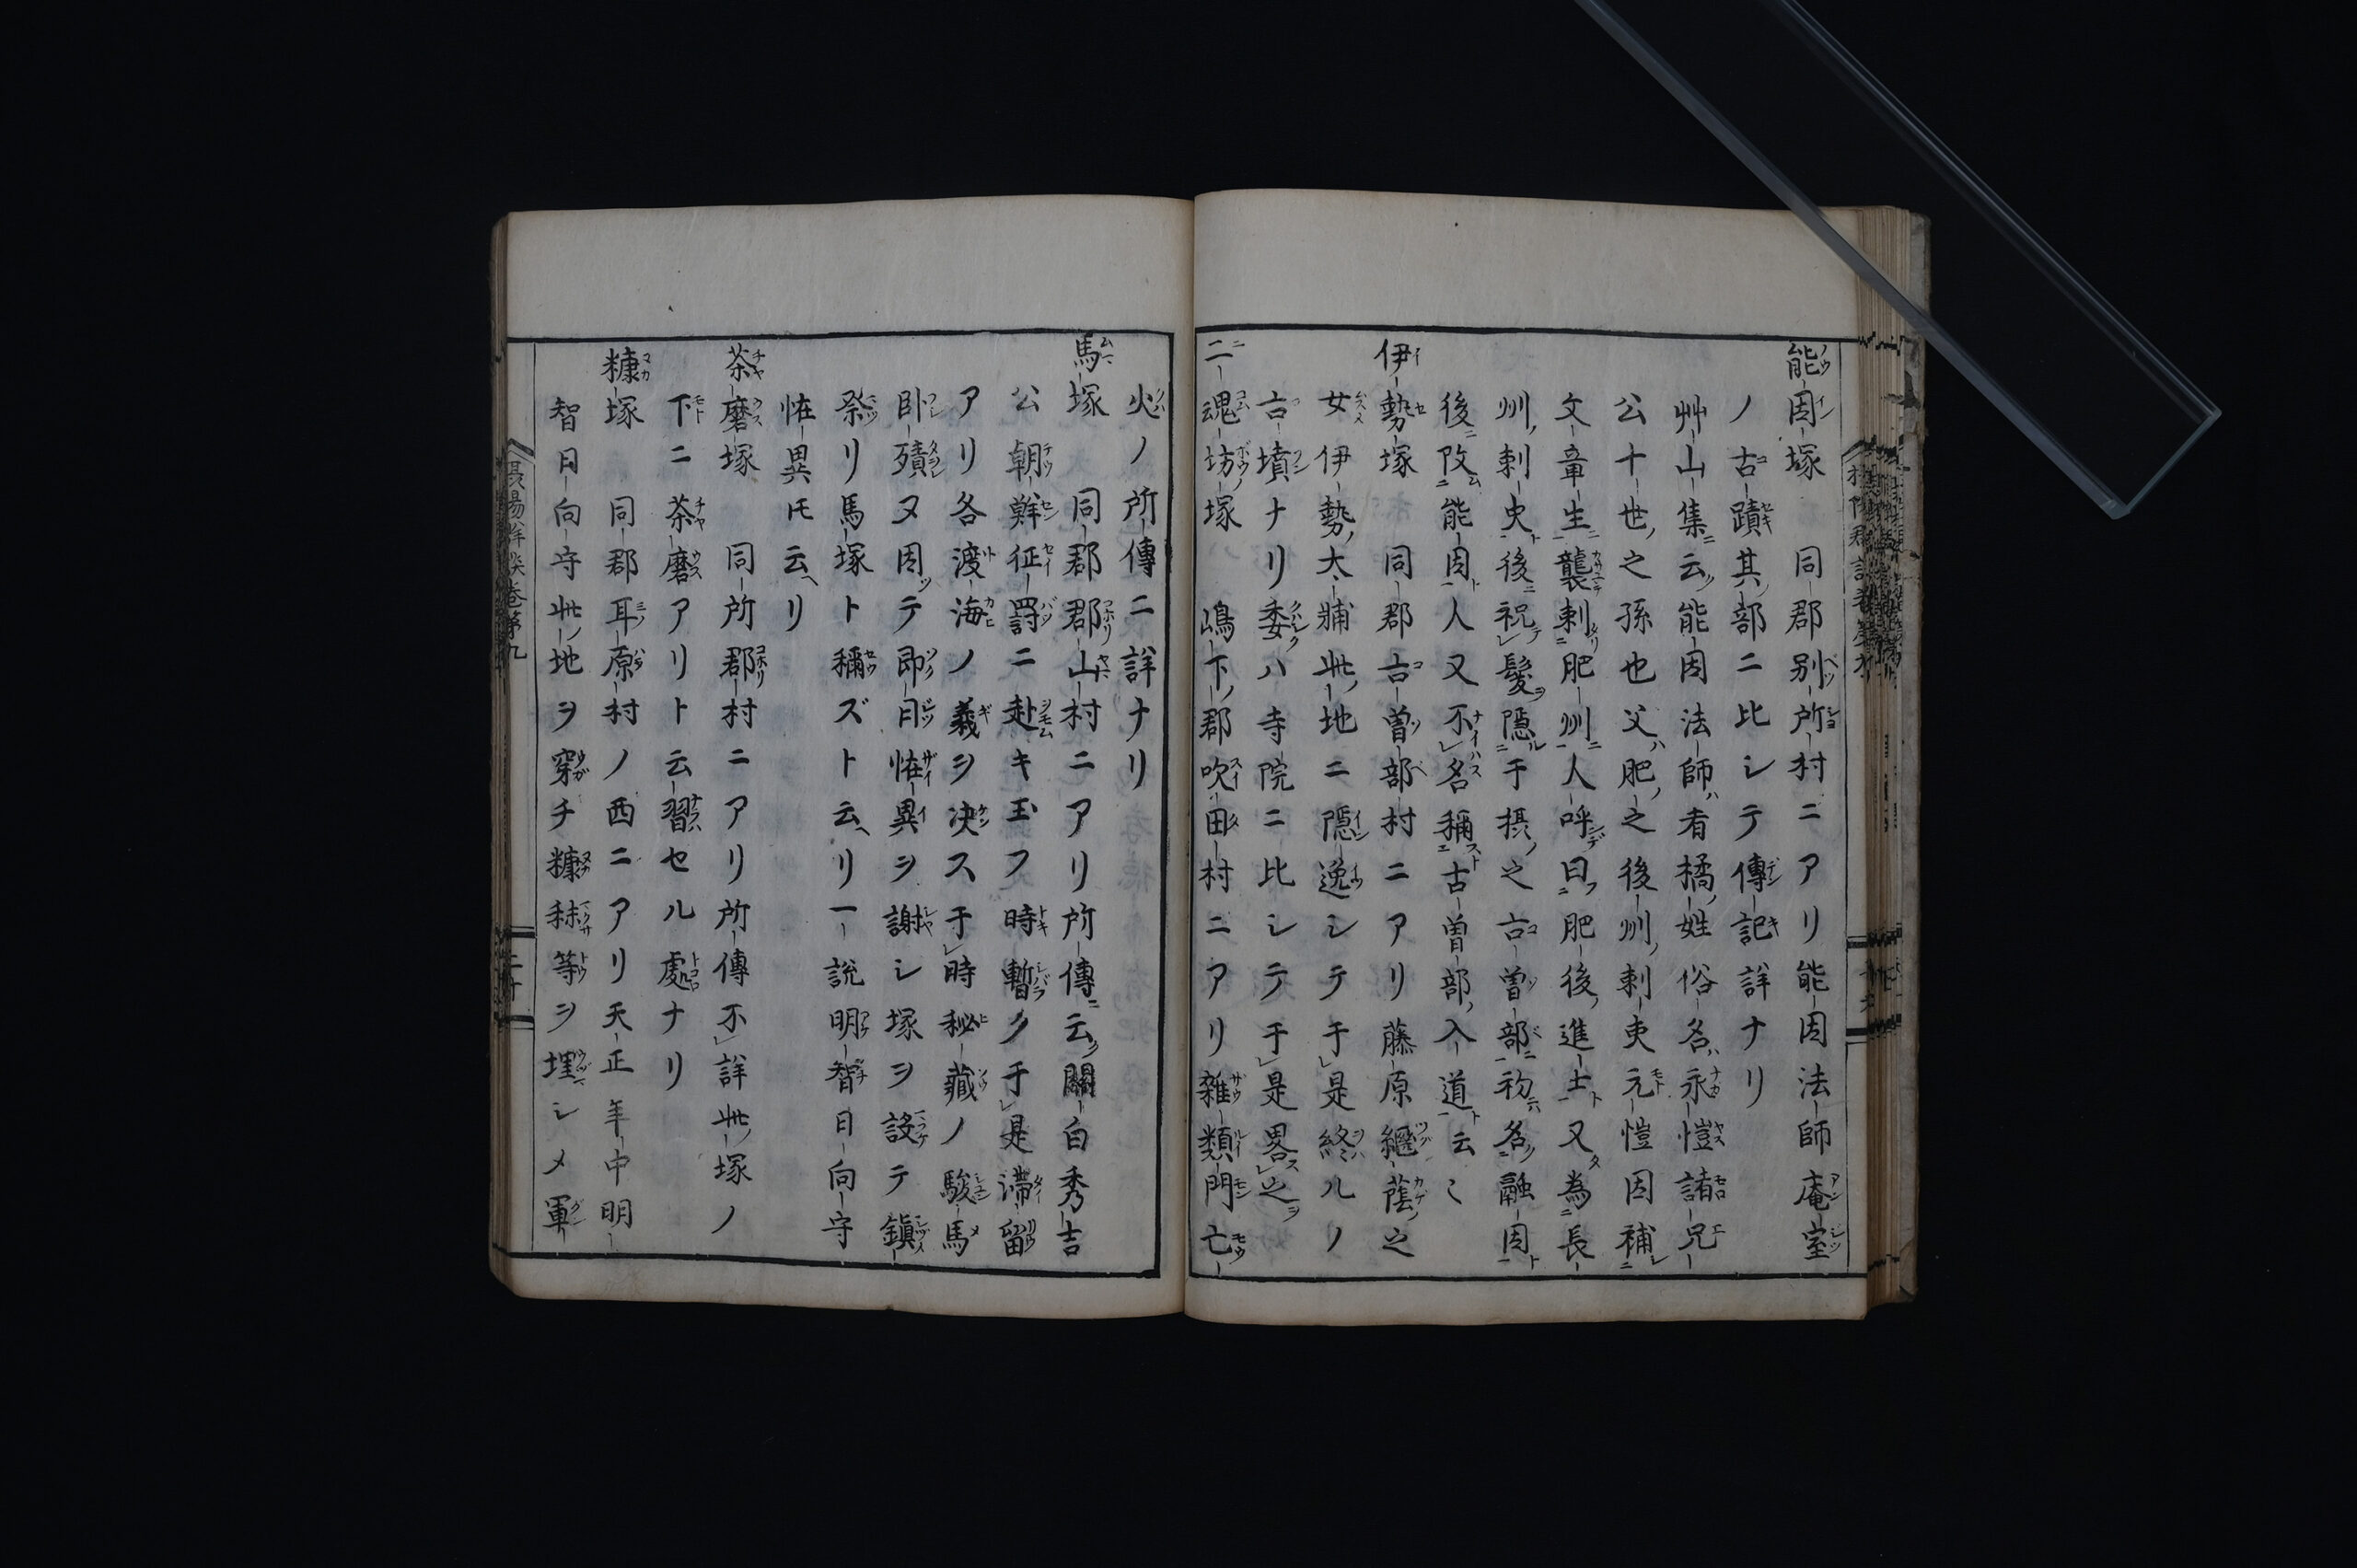 能因塚 同郡別所村ニアリ能因法師庵室
ノ古蹟其部ニ比シテ傳記詳ナリ
艸山集云能因法師者橘姓俗名永愷諸兄
公十世之孫也父肥之後州刺吏元愷因補
文章生襲刺肥州人呼曰肥後進士又為長
州刺史後祝髮隱于摂之古曽部初名融因
後改能因人又不名稱古曽部入道云〻
伊勢塚 同郡古曽部村ニアリ藤原繼蔭之
女伊勢大輔此地ニ隠逸シテ于是終ルノ
古墳ナリ委ハ寺院ニ比シテ于是畧之
二魂坊塚 嶋下郡吹田村ニアリ雜類門亡
火ノ所傳ニ詳ナリ
馬塚 同郡郡山村ニアリ所傳云關白秀吉
公朝鮮征罸ニ赴キ玉フ時暫ク于是滞留
アリ各渡海ノ義ヲ决ス于時秘藏ノ駿馬
卧殰ヌ因テ即日恠異ヲ謝シ塚ヲ設テ鎭
祭リ馬塚ト稱ズト云リ一説明智日向守
恠異氏云リ
茶磨塚 同所郡村ニアリ所傳不詳此塚ノ
下ニ茶磨アリト云習セル處ナリ
糠塚 同郡耳原村ノ西ニアリ天正年中明
智日向守此地ヲ穿チ糠秣等ヲ埋シメ軍
陽羣談卷第九
二十